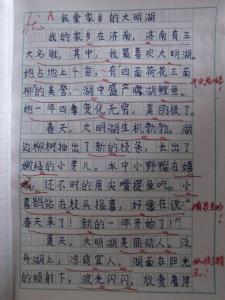 优 A 我爱家乡的大明湖
我的家乡在济南，济南有三
大名胜，其中，我最喜欢大明湖。
她占地上千亩，有四面荷花三面
柳的美誉，湖中盛产
她一年四季变化无穷，美丽极了。
春天，大明湖生机勃勃。湖
边柳树抽出了新的枝条，长出了
嫩绿的小芽儿。水中小野鸭在嬉
戏，还不时的用尖嘴捉鱼。小
喜鹊站在枝头报喜，好像在说：“
春天来了！新的一年开始了！”
夏天，大明湖美丽动人。泛
舟湖上，凉爽宜人，湖面在阳光
的照射下，波光闪闪。欣赏着岸